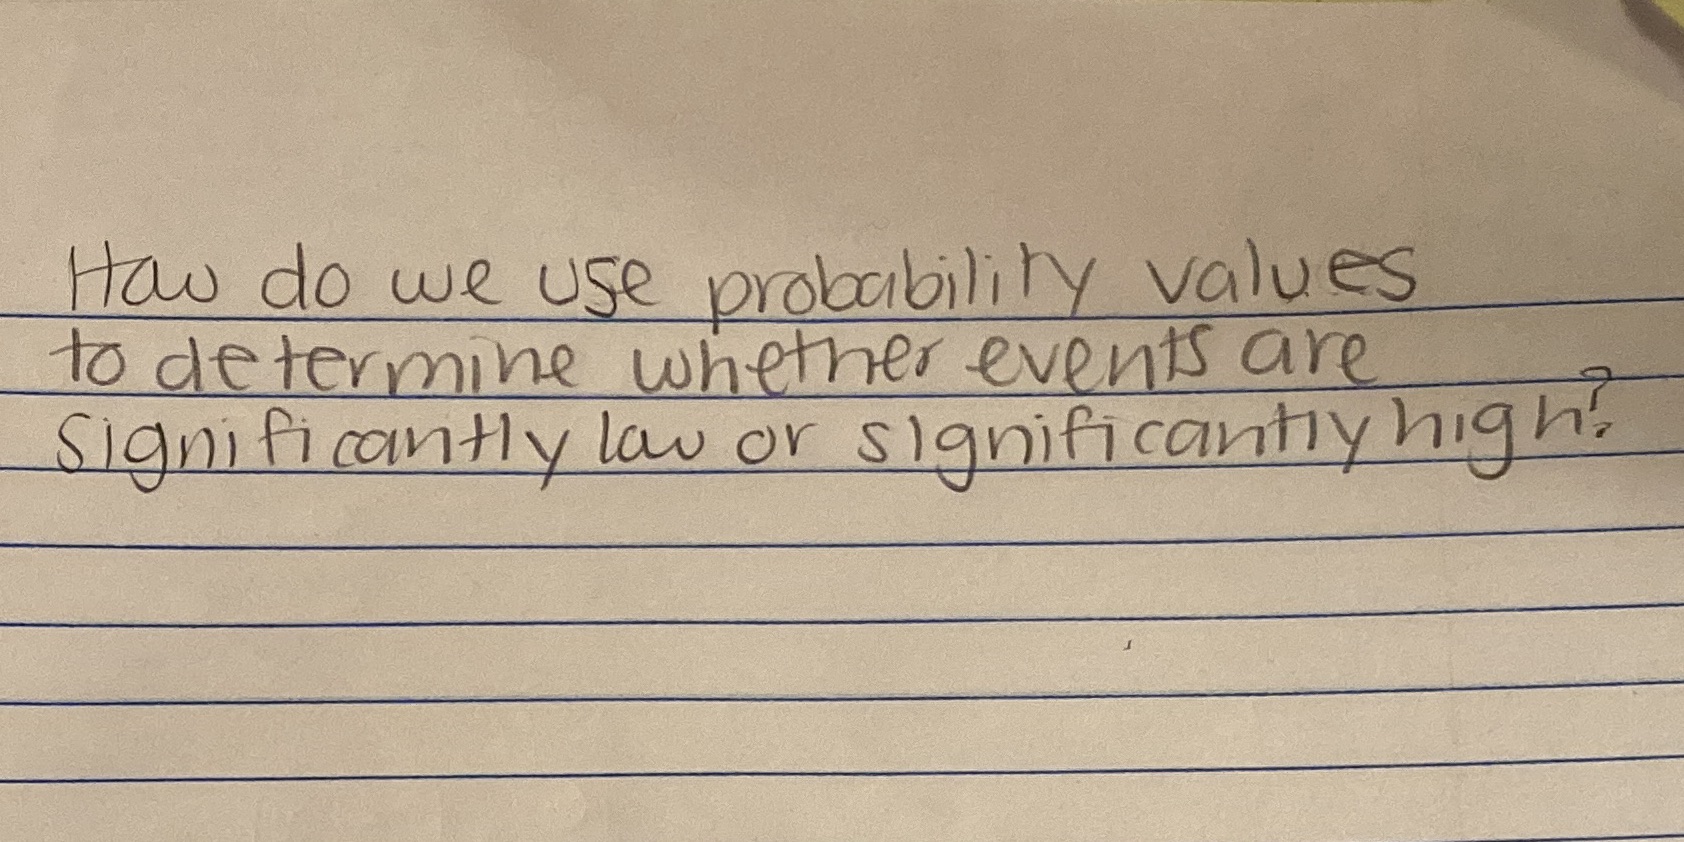 How do we use probability values
to determine whether events are
significantly low or significantly high?